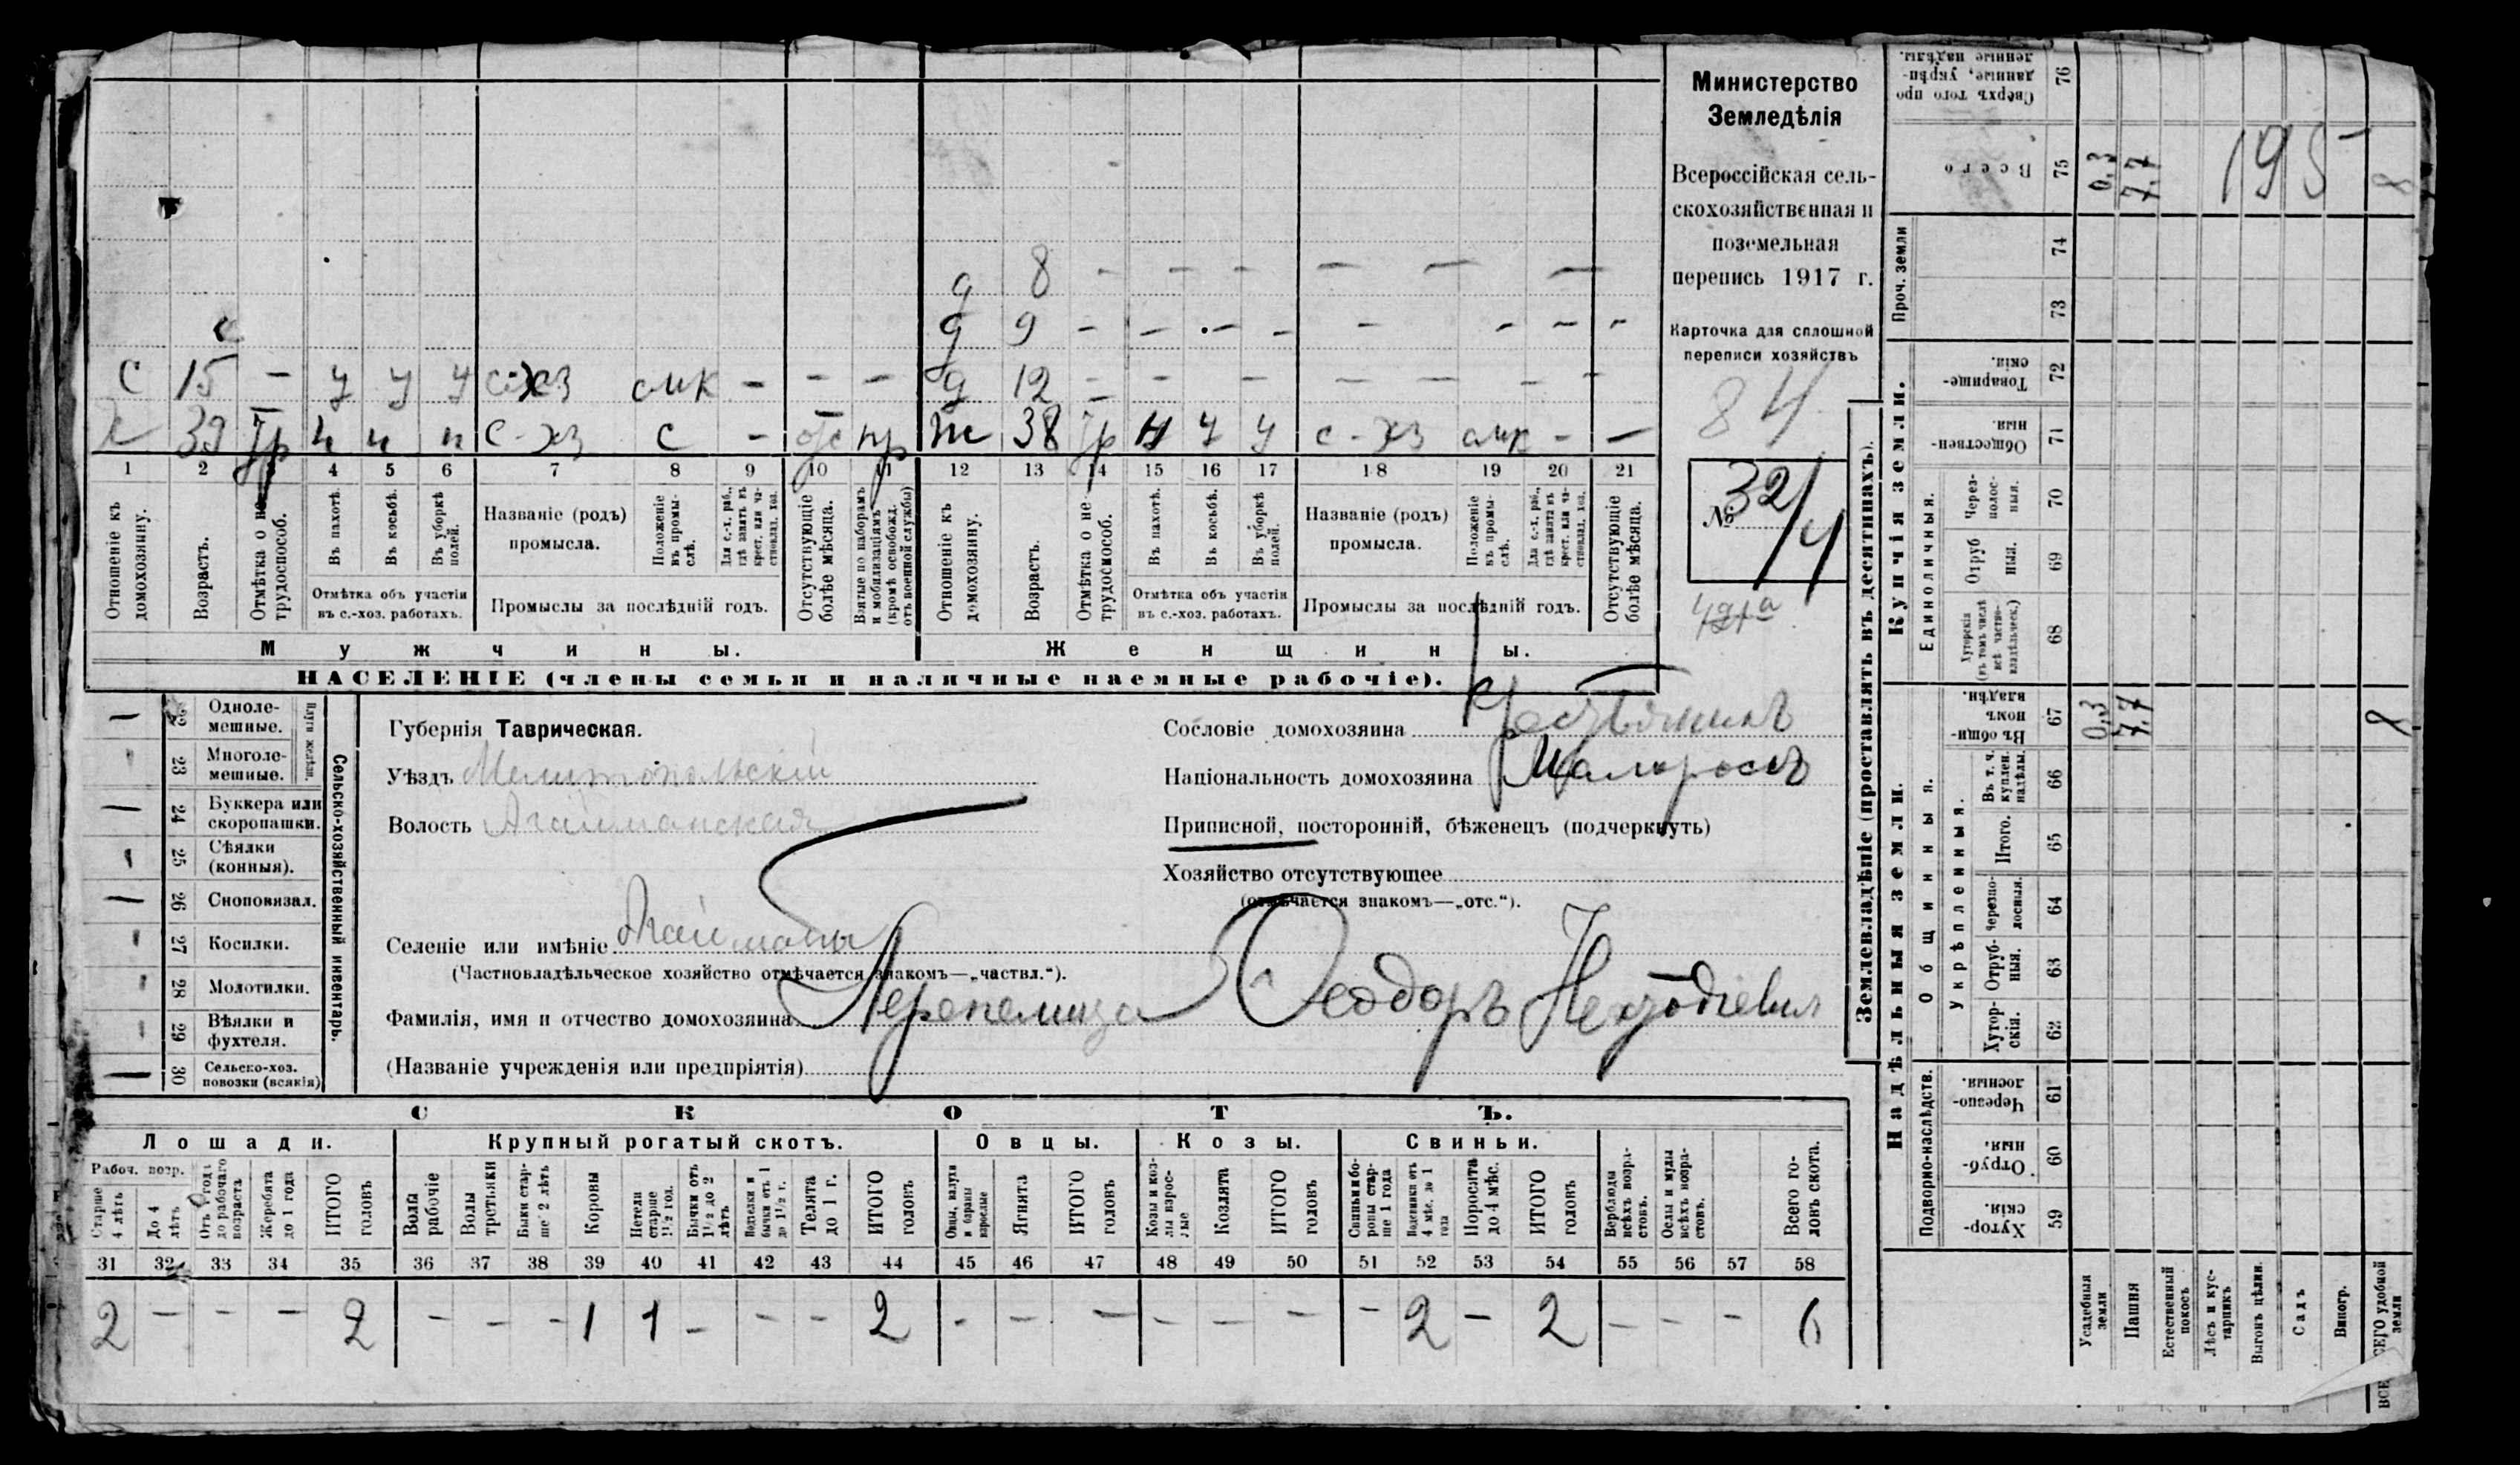 Министерство
Земледѣлія
Всероссійская сель-
скохозяйственная и
поземельная
перепись 1917 г.
Карточка для сплошной
переписи хозяйствъ
84
№ 32/4
д 8 - - - - - -
д 9 - - - - - - - -
С 15 - у у у с-хз смк - - - д 12 - - - - - - - -
39 тр ч ч ч с-хз с - отс пр ж 38 тр ч ч у с-хз смк - -
1 2 3 4 5 6 7 8 9 10 11 12 13 14 15 16 17 18 19 20 21
Отношеніе къ домохозяину.
Возрастъ.
Отмѣтка о не трудоспособ.
Въ пахотѣ.
Въ косьбѣ.
Въ уборкѣ полей.
Отмѣтка объ участіи въ с.-хоз. работахъ.
Названіе (родъ) промысла.
Положеніе въ промы-слѣ.
Для с.-х. раб., гдѣ занятъ въ крест. или ча-стновлад. хоз.
Промыслы за послѣдній годъ.
Отсутствующіе болѣе мѣсяца.
Взятые по наборамъ и мобилизаціямъ (кромѣ освобожд. отъ военной службы)
Отношеніе къ домохозяину.
Возрастъ.
Отмѣтка о не трудоспособ.
Въ пахотѣ.
Въ косьбѣ.
Въ уборкѣ полей.
Отмѣтка объ участіи въ с.-хоз. работахъ.
Названіе (родъ) промысла.
Положеніе въ промы-слѣ.
Для с.-х. раб., гдѣ занята въ крест. или ча-стновлад. хоз.
Промыслы за послѣдній годъ.
Отсутствующіе болѣе мѣсяца.
Мужчины. Женщины.
НАСЕЛЕНІЕ (члены семьи и наличные наемные рабочіе).
Сельско-хозяйственный инвентарь.
Плуги желѣзн.
— 22 Одноле-мешные.
23 Многоле-мешные.
— 24 Буккера или скоропашки.
25 Сѣялки (конныя).
— 26 Сноповязал.
27 Косилки.
28 Молотилки.
29 Вѣялки и фухтеля.
— 30 Сельско-хоз. повозки (всякія)
Губернія Таврическая.
Уѣздъ Мелитопольскій
Волость Агайманская
Селеніе или имѣніе Агайманы
(Частновладѣльческое хозяйство отмѣчается знакомъ—„частвл.“).
Фамилія, имя и отчество домохозяина Перепелица Феодоръ
(Названіе учрежденія или предпріятія)
Сословіе домохозяина Крестьянинъ
Національность домохозяина Малороссъ
Приписной, посторонній, бѣженецъ (подчеркнуть)
Хозяйство отсутствующее
(отмѣчается знакомъ—„отс.“).
СКОТЪ.
Лошади. Крупный рогатый скотъ. Овцы. Козы. Свиньи.
Рабоч. возр.
Старше 4 лѣтъ
До 4 лѣтъ
Отъ 1 года до рабочаго возраста
Жеребята до 1 года
ИТОГО головъ
Волы рабочіе
Волы третьяки
Быки стар-ше 2 лѣтъ
Коровы
Нетели старше 1½ год.
Бычки отъ 1½ до 2 лѣтъ
Подтелки и бычки отъ 1 до 1½ г.
Телята до 1 г.
ИТОГО головъ
Овцы, валухи и бараны взрослые
Ягнята
ИТОГО головъ
Козы и коз-лы взрос-лые
Козлята
ИТОГО головъ
Свиньи и бо-ровы стар-ше 1 года
Подсвинки отъ 4 мѣс. до 1 года
Поросята до 4 мѣс.
ИТОГО головъ
Верблюды всѣхъ возра-стовъ.
Ослы и мулы всѣхъ возра-стовъ.
Всего го-ловъ скота.
31 32 33 34 35 36 37 38 39 40 41 42 43 44 45 46 47 48 49 50 51 52 53 54 55 56 57 58
2 - - - 2 - - - 1 1 - - - 2 - - - - - - - 2 - 2 - - - 6
Землевладѣніе (проставлять въ десятинахъ).
Купчія земли.
Надѣльныя земли.
Сверхъ того про данные, укрѣп-ленные надѣлы. 76
Всего 75 0,3 7,7 195- 8
Проч. земли 74 73
Товарище-скія. 72
Обществен-ныя. 71
Единоличныя.
Через-полос-ныя. 70
Отруб ныя. 69
Хуторскія (въ томъ числѣ всѣ частно-владѣльческ.) 68
Общинныя.
Въ общи-номъ владѣн. 67 0,3 7,7 8
Укрѣпленныя.
Въ т. ч. куплен. надѣлы. 66
Итого. 65
Черезпо-лосныя. 64
Отруб-ныя. 63
Хутор-скія. 62
Подворно-наслѣдств.
Черезпо-лосныя. 61
Отруб-ныя. 60
Хутор-скія. 59
Усадебныя земли
Пашня
Естественный покосъ
Лѣсъ и кус-тарникъ
Выгонъ цѣлин.
Садъ
Виногр.
ВСЕГО удобной земли